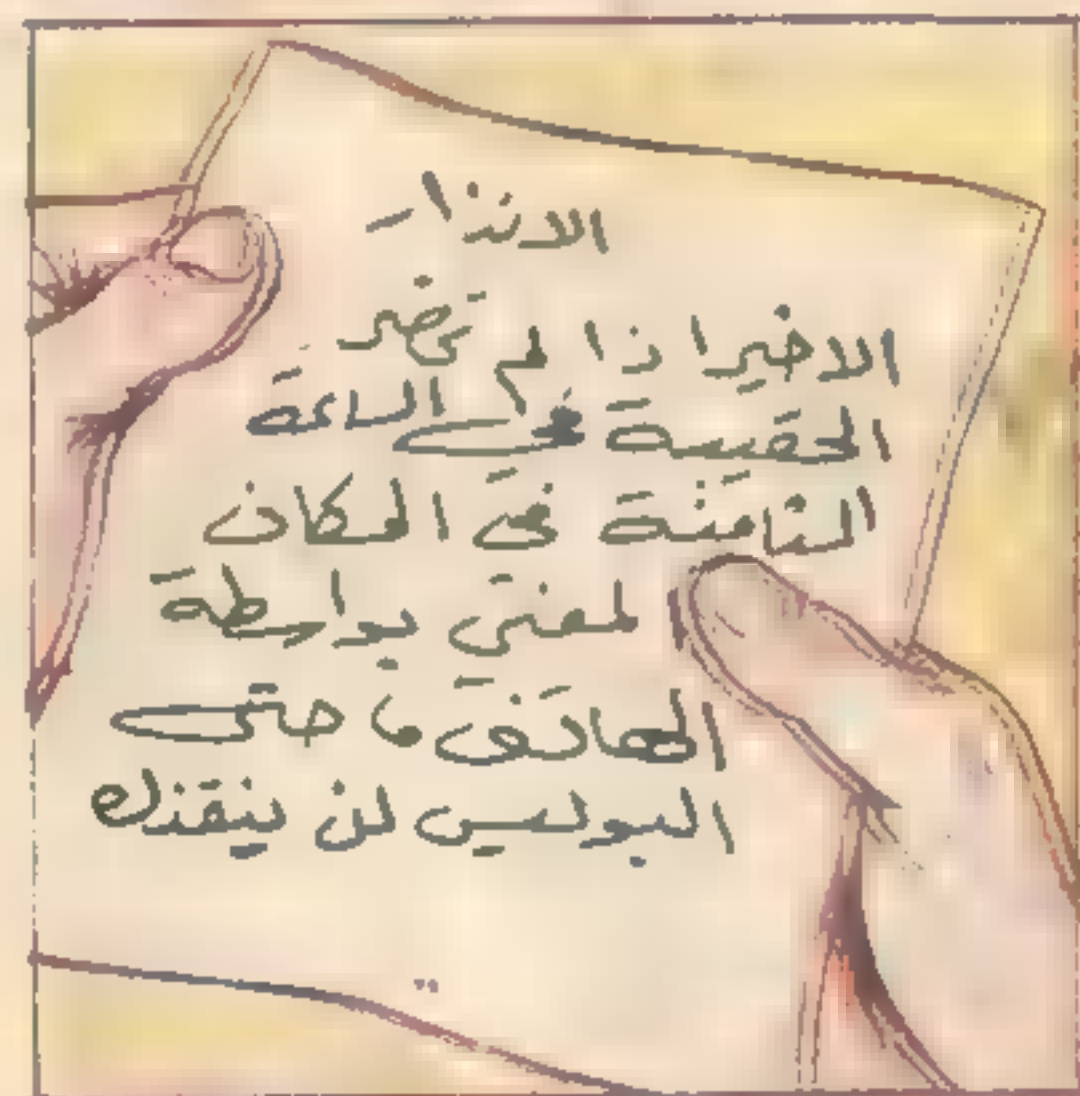 الانذار
الاخير اذا لم تحضر
الحقيبة في الساعة
الثامنة في المكان
لمعني بواسطة
الهاتف، حتى
البوليس لن ينقذك